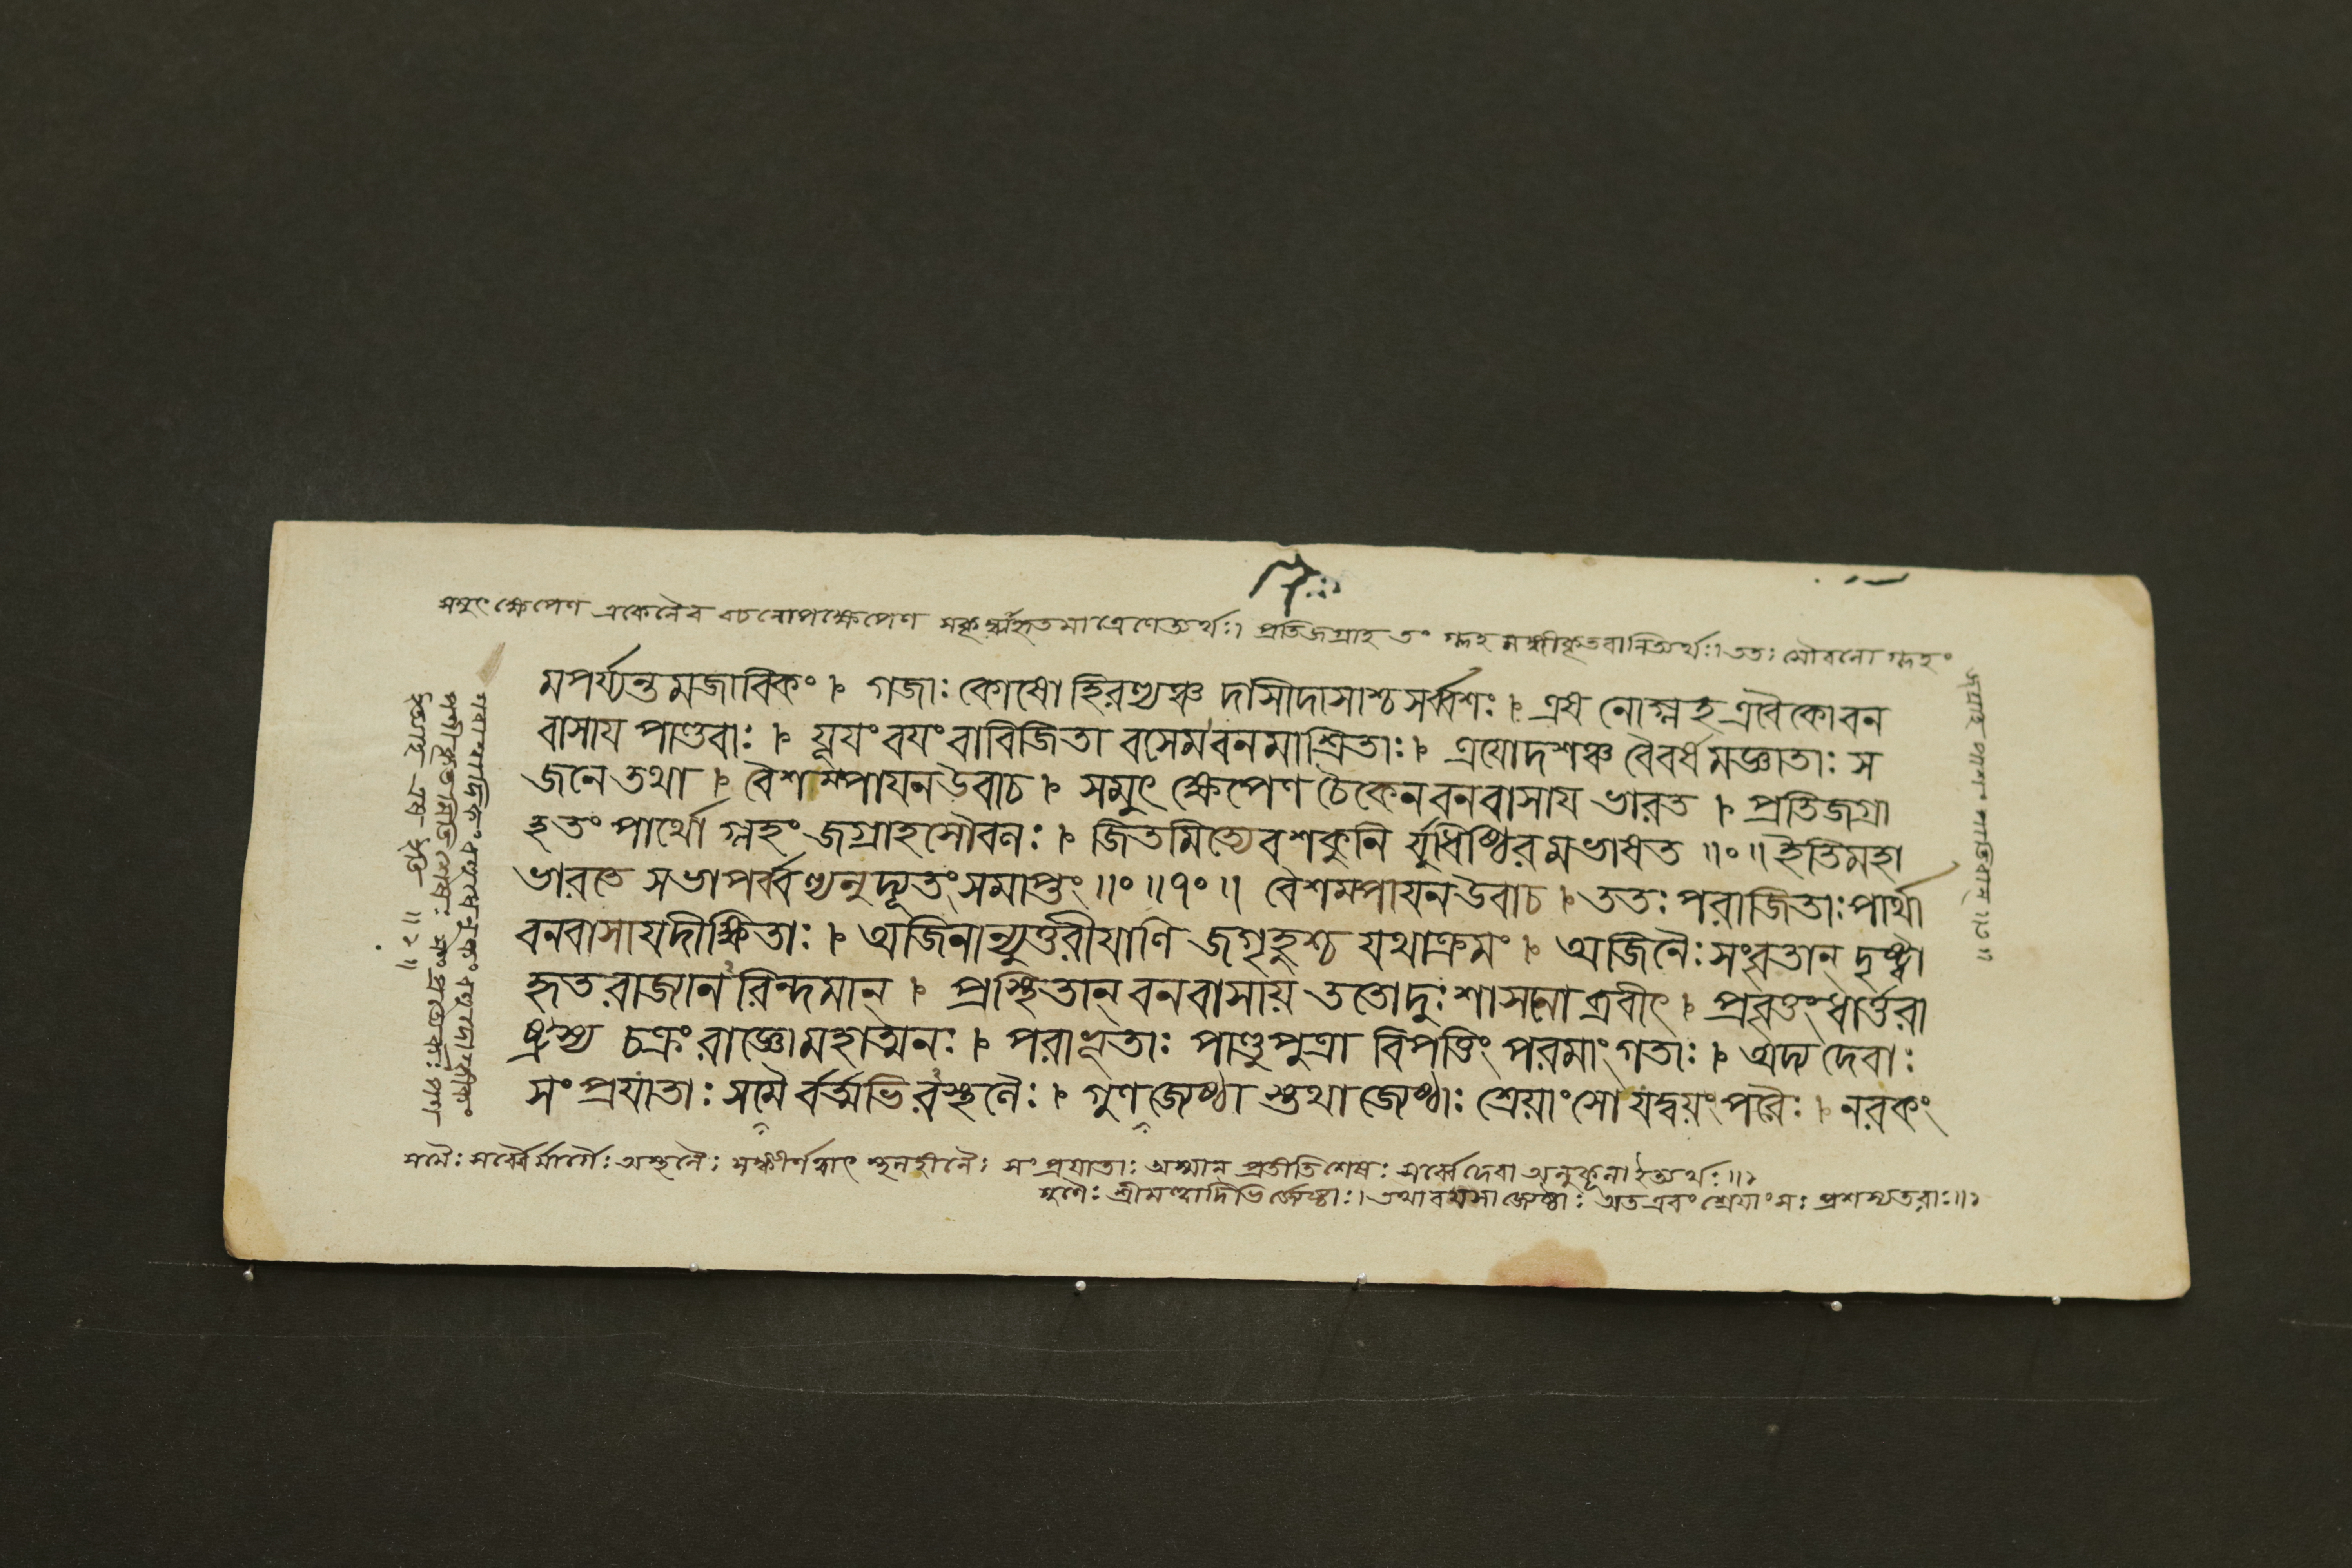 সমুৎক্ষেপেণ একেনৈব বচনোপক্ষেপেণ প্রতিজগ্রাহ তং গ্লহ মঙ্গীকৃতবানিত্যর্থঃ। ততঃ সৌবলো গ্লহং
মপর্য্যন্তমজাবিকং । গজাঃ কোষো হিরণ্যঞ্চ দাসীদাসাশ্চ সর্ব্বশঃ । এষ নো গ্লহ এবৈকো বন
বাসায পাণ্ডবাঃ । যূযং বযং বা বিজিতা বসেম বনমাশ্রিতাঃ । ত্রযোদশঞ্চ বৈ বর্ষমজ্ঞাতাঃ স
জনে তথা । বৈশম্পাযন উবাচ । সমুৎক্ষেপেণ চৈকেন বনবাসায ভারত । প্রতিজগ্রা
হ তং পার্থো গ্লহং জগ্রাহ সৌবলঃ । জিতমিত্যেব শকুনি র্যুধিষ্ঠিরমভাষত ॥০॥ ইতি মহা
ভারতে সভাপর্ব্বণ্যনুদ্যূতং সমাপ্তং ॥০॥৭০॥ বৈশম্পাযন উবাচ । ততঃ পরাজিতাঃ পার্থা
বনবাসায দীক্ষিতাঃ । অজিনান্যুত্তরীযাণি জগৃহুশ্চ যথাক্রমং । অজিনৈঃ সংবৃতান্ দৃষ্ট্বা
হৃতরাজ্যানরিন্দমান্ । প্রস্থিতান্ বনবাসায় ততো দুঃশাসনো ব্রবীৎ । প্রবৃত্তং ধার্ত্তরা
ষ্ট্রস্য চক্রং রাজ্ঞো মহাত্মনঃ । পরাভূতাঃ পাণ্ডুপুত্রা বিপত্তিং পরমাং গতাঃ । অদ্য দেবাঃ
সংপ্রযাতাঃ সমৈ র্বর্ত্মভিরস্থলৈঃ । গুণজ্যেষ্ঠা স্তথা জ্যেষ্ঠাঃ শ্রেয়াংসো যদ্বয়ং পরৈঃ । নরকং
সমৈঃ সর্ব্বৈর্মার্গৈঃ অস্থলৈঃ সংপ্রযাতাঃ অস্মান্ প্রতীতিশেষঃ সর্ব্বে দেবা অনুকূলা ইত্যর্থঃ॥১
গুণৈঃ তথা বযসা জ্যেষ্ঠাঃ অতএবং শ্রেযাংসঃ প্রশস্যতরাঃ॥১